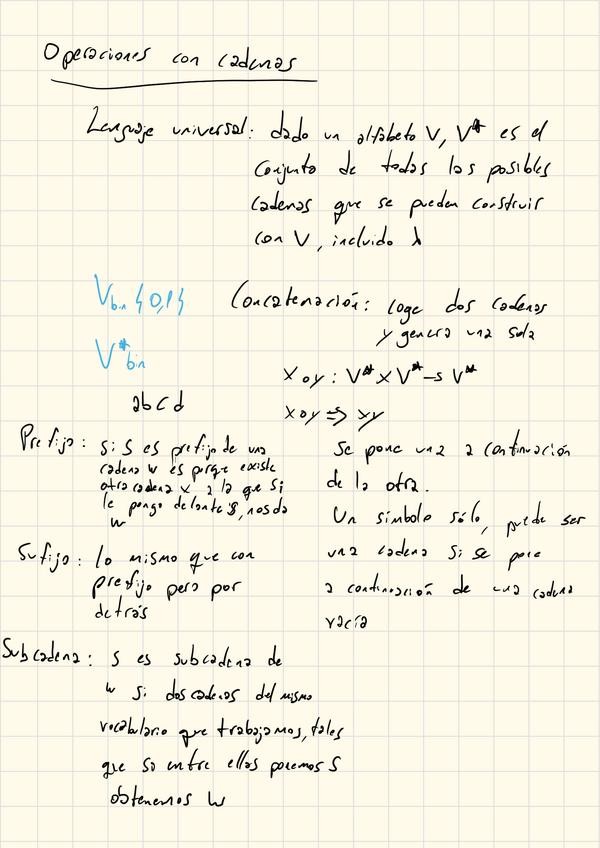 Operaciones con cadenas
Lenguaje universal: dado un alfabeto V, V* es el
conjunto de todas las posibles
cadenas que se pueden construir
con V, incluido λ
V bin {0,1}
V* bin
abcd
Concatenación: coge dos cadenas
y genera una sola
x o y : V* x V* → V*
x o y ⇒ xy
Se pone una a continuación
de la otra.
Un símbolo sólo, puede ser
una cadena si se pone
a continuación de una cadena
vacía
Prefijo: si S es prefijo de una
cadena w es porque existe
otra cadena x, a la que si
le pongo delante S, nos da
w
Sufijo: lo mismo que con
prefijo pero por
detrás
Subcadena: S es subcadena de
w si dos cadenas del mismo
vocabulario que trabajamos, tales
que si entre ellas ponemos S
obtenemos w